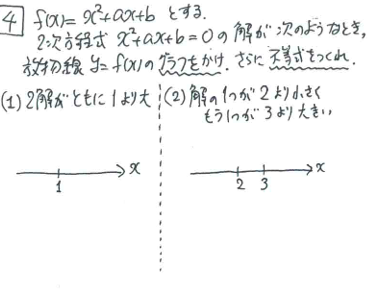 4 f(x)=x²+ax+b とする.
2次方程式 x²+ax+b=0 の解が次のようなとき,
放物線 y=f(x)のグラフをかけ. さらに不等式をつくれ.
(1) 2解がともに1より大
(2) 解の1つが2より小さく
もう1つが3より大きい
x
1
x
2 3